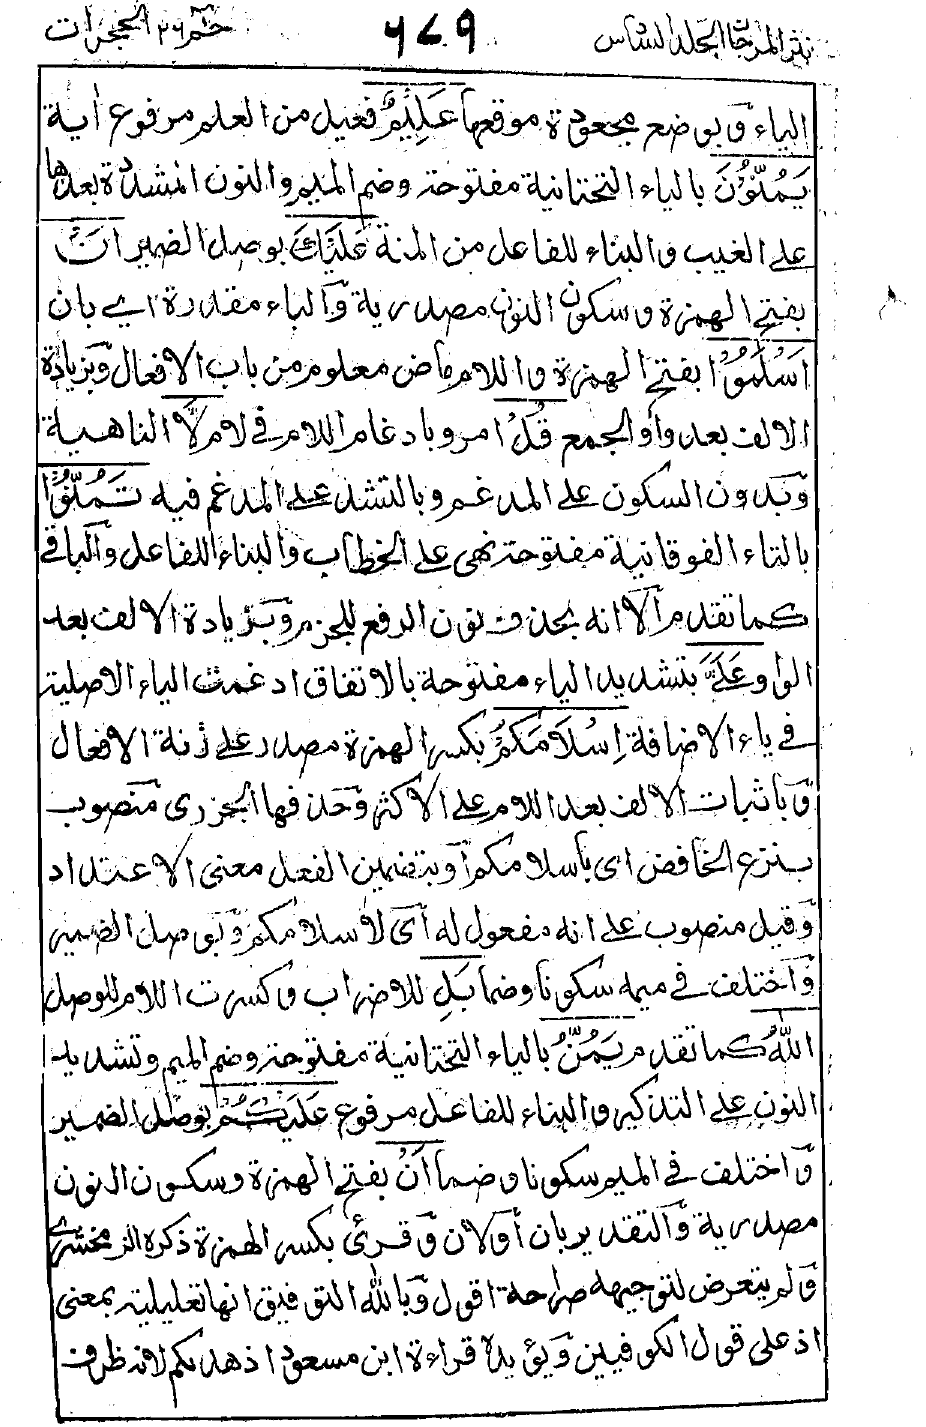 نثر المرجان المجلد السادس ٦٧٩ حٰم ٢٦ الحجرات
الياء وبوضع مجعودة موقعها عَلِيْمٌ فعيل من العلم مرفوع اية
يَمُنُّوْنَ بالياء التحتانية مفتوحة وضم الميم والنون المشددة بعدها
على الغيب والبناء للفاعل من المنة عَلَيْكَ بوصل الضمير اَنْ
بفتح الهمزة وسكون النون مصدرية والباء مقدرة اي بان
اَسْلَمُوْا بفتح الهمزة واللام ماض معلوم من باب الافعال وبزيادة
الالف بعد واو الجمع قُلْ امر وبادغام اللام في لام لَّا الناهية
وبدون السكون على المدغم وبالتشديد على المدغم فيه تَمُنُّوْا
بالتاء الفوقانية مفتوحة نهي على الخطاب والبناء للفاعل والباقي
كما تقدم الا انه بحذف نون الرفع للجزم وبزيادة الالف بعد
الواو عَلَيَّ بتشديد الياء مفتوحة بالاتفاق ادغمت الياء الاصلية
في ياء الاضافة اِسْلَامَكُمْ بكسر الهمزة مصدر على زنة الافعال
وباثبات الالف بعد اللام على الاكثر وحذفها الجزري منصوب
بنزع الخافض اى باسلامكم او بتضمين الفعل معنى الاعتداد
وقيل منصوب على انه مفعول له اى لاسلامكم وبوصل الضمير
واختلف في ميمه سكونا وضما بَلِ للاضراب وكسرت اللام للوصل
اللّٰهُ كما تقدم يَمُنُّ بالياء التحتانية مفتوحة وضم الميم وتشديد
النون على التذكير والبناء للفاعل مرفوع عَلَيْكُمْ بوصل الضمير
واختلف في الميم سكونا وضما اَنْ بفتح الهمزة وسكون النون
مصدرية والتقدير بان أو لان وقرئ بكسر الهمزة ذكره الزمخشري
ولم يتعرض لتوجيهه صراحة اقول وبالله التوفيق انها تعليلية بمعنى
اذ على قول الكوفيين ويؤيده قراءة ابن مسعود اذ هدىكم لانه ظرف